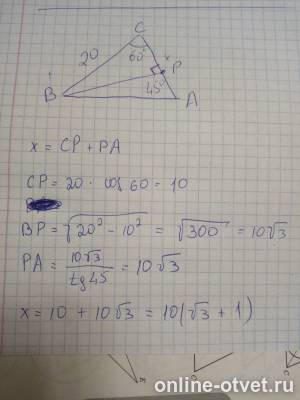 C
20
60°
x
P
45°
B
A
x = CP + PA
CP = 20 · cos 60 = 10
BP = √(20² - 10²) = √300 = 10√3
PA = 10√3 / tg 45 = 10√3
x = 10 + 10√3 = 10(√3 + 1)
online-otvet.ru